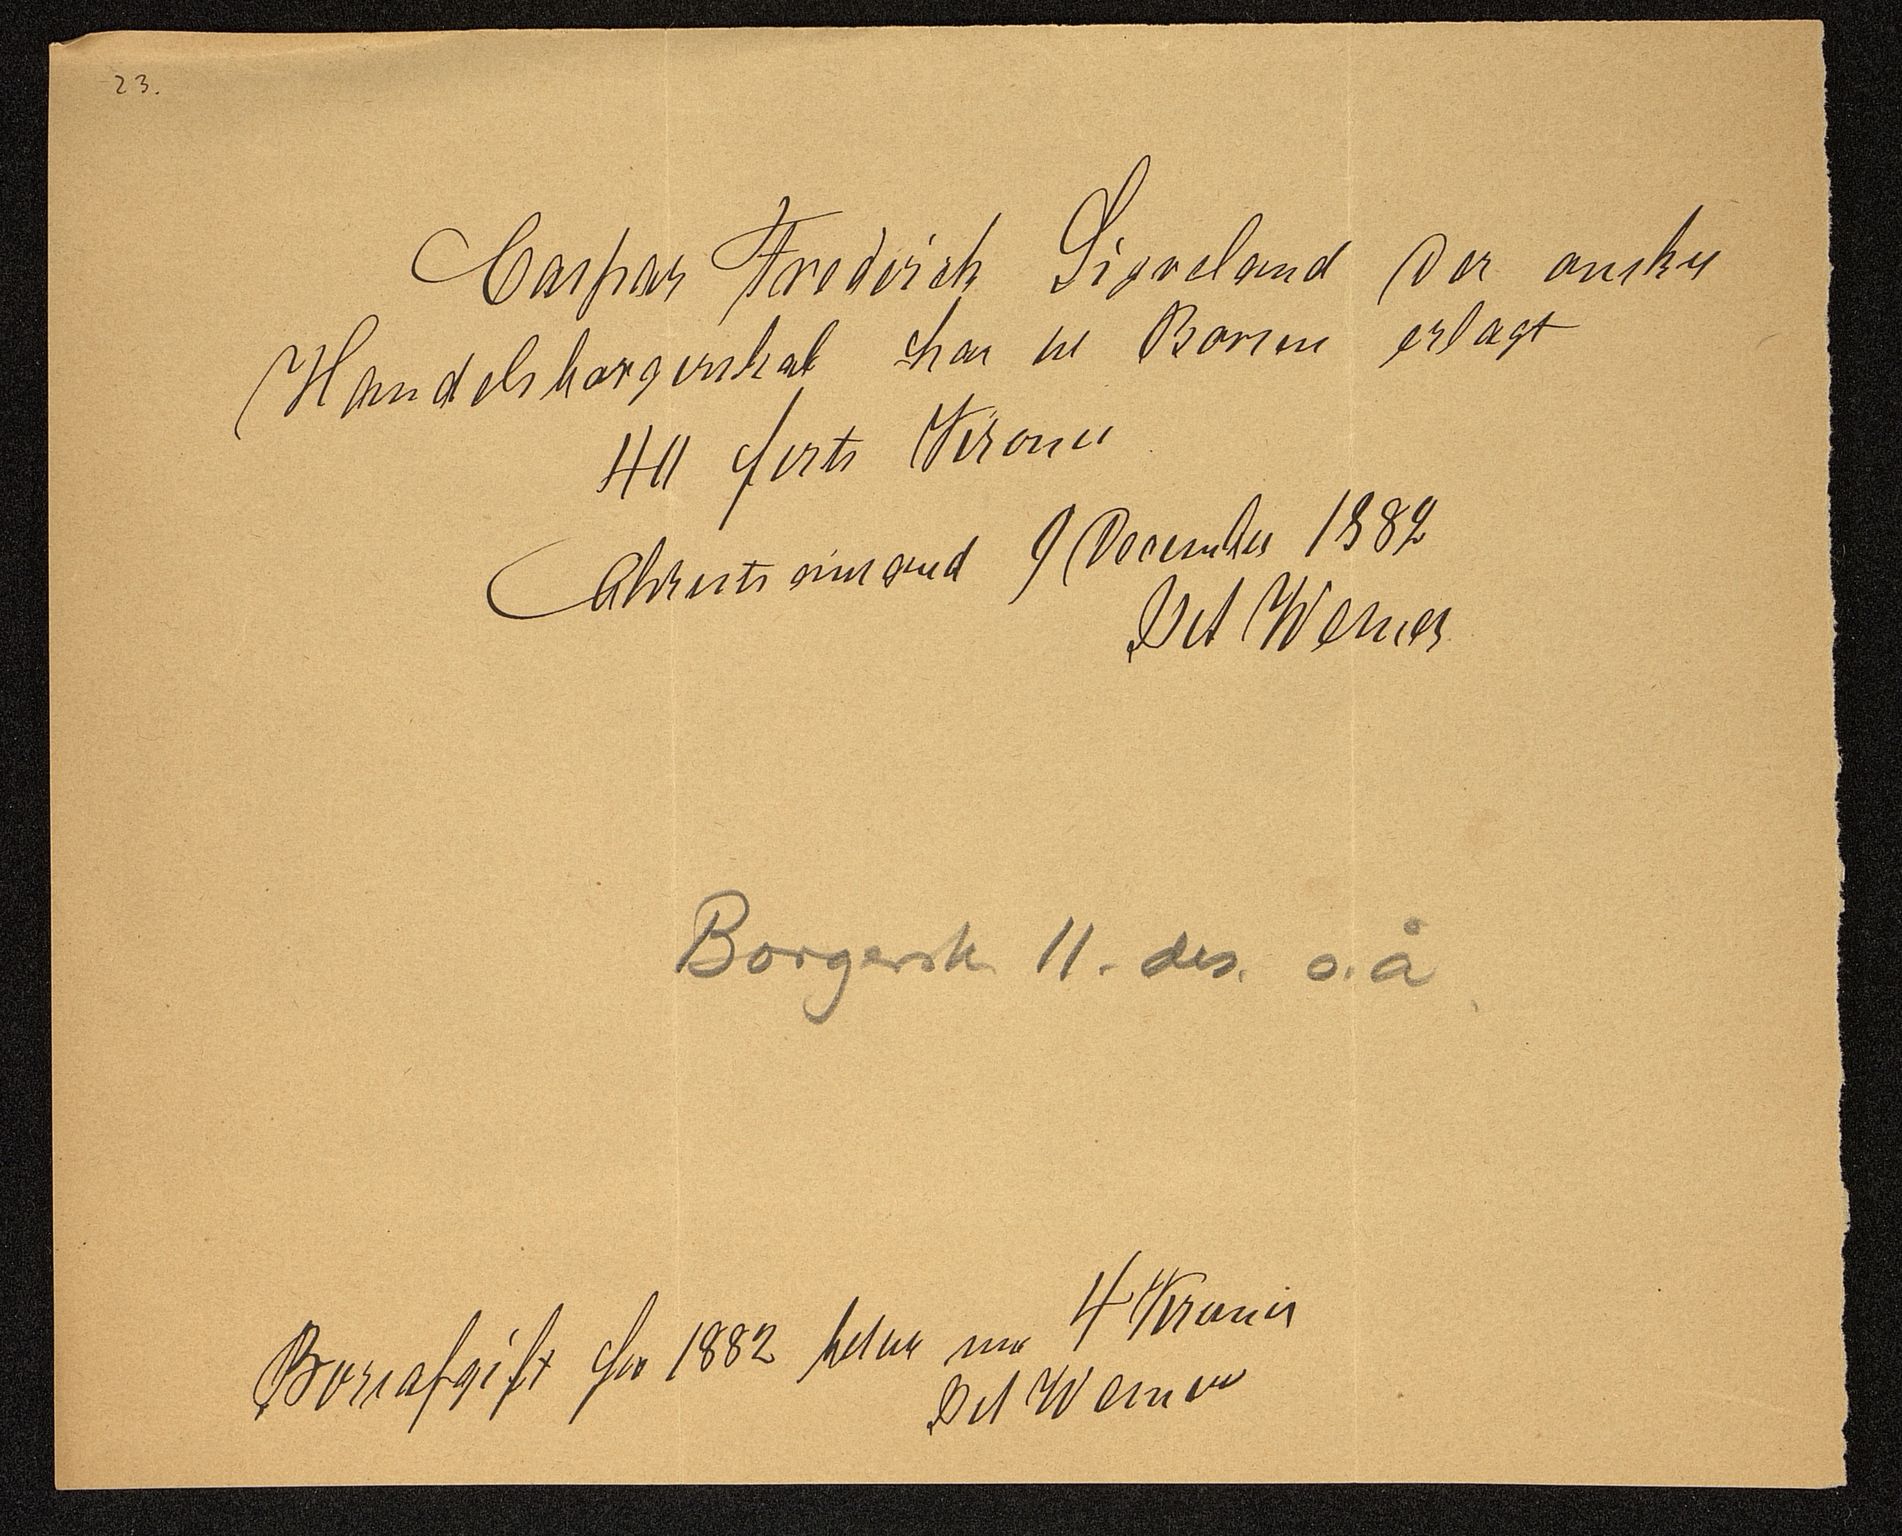 23.
Caspar Frederick Sigveland der ønsker
Handelsborgerskab har til Børsen erlagt
40 førti Kroner
Christiansand 9 December 1882
Det Werner
Borgersk 11. des. s.å
Børsafgift for 1882 betalt med 4 Kroner
Det Werner